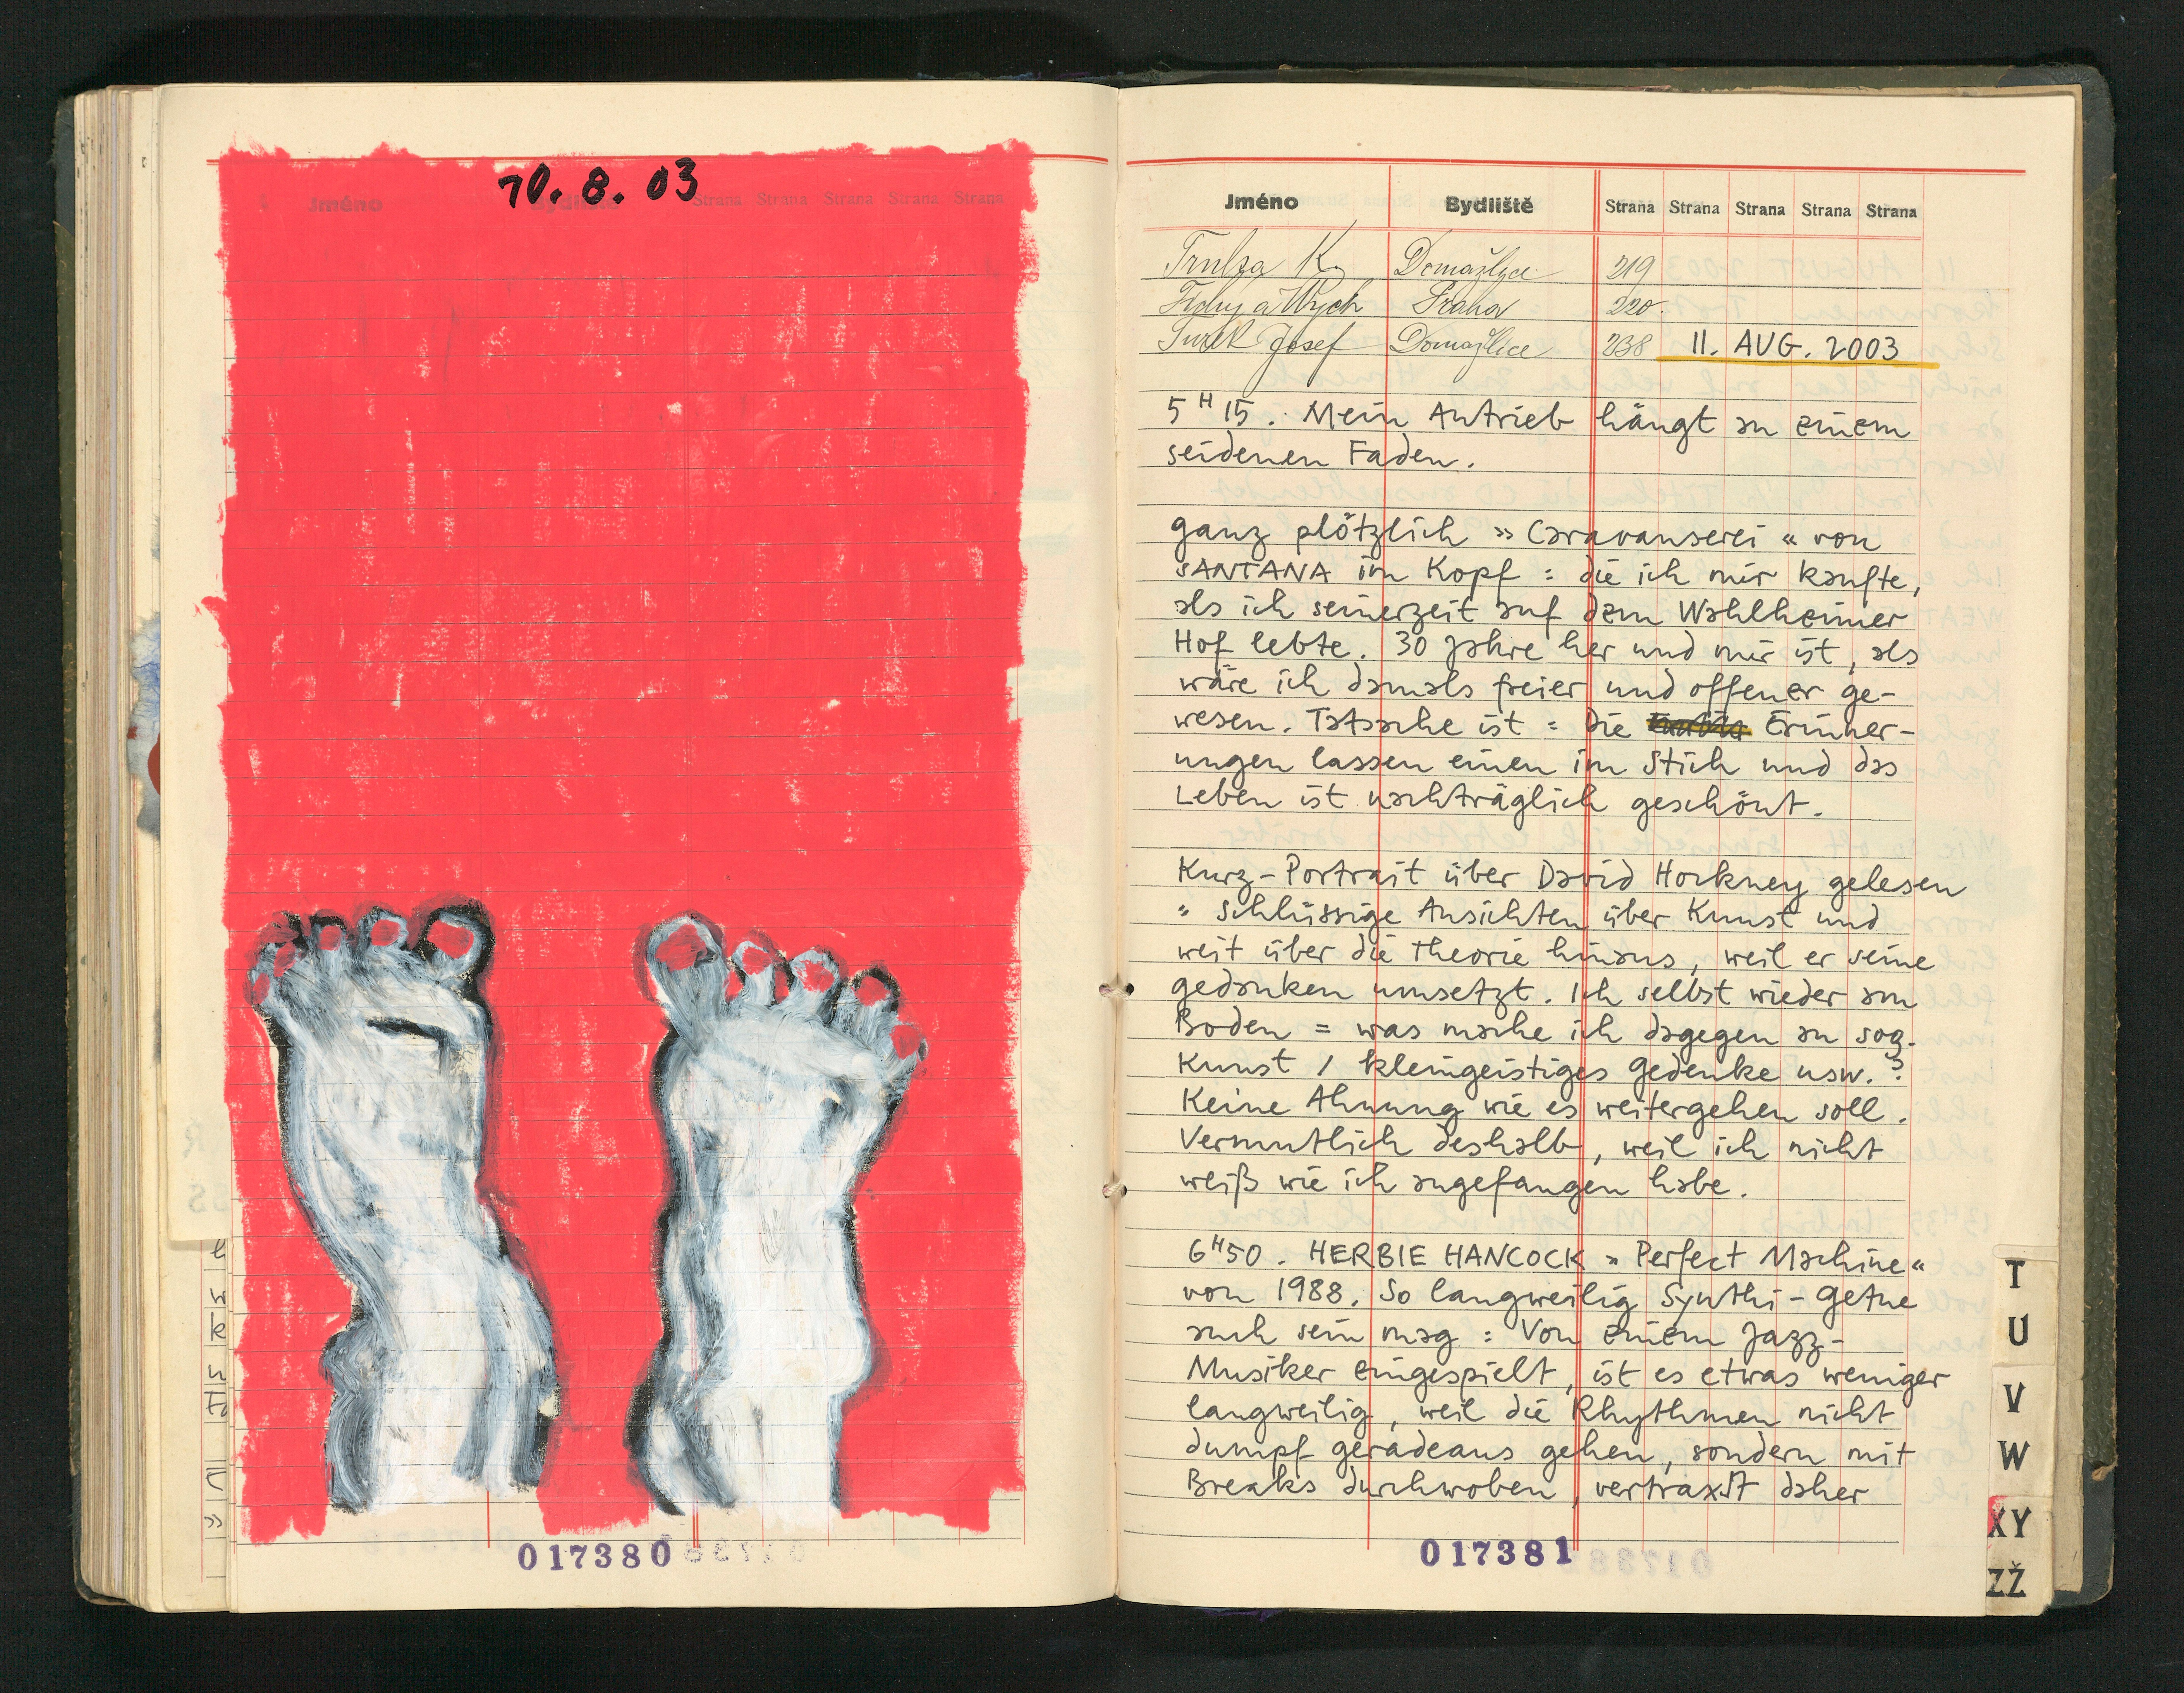 10. 8. 03
Jméno Bydliště Strana Strana Strana Strana Strana
017380
Jméno Bydliště Strana Strana Strana Strana Strana
K. Domažlice 219
Praha 220.
Josef Domažlice 238 11. AUG. 2003
5 H 15. Mein Antrieb hängt an einem
seidenen Faden.
ganz plötzlich »Caravanserei« von
SANTANA im Kopf = die ich mir kaufte,
als ich seinerzeit auf dem Wahlheimer
Hof lebte. 30 Jahre her und mir ist, als
wäre ich damals freier und offener ge-
wesen. Tatsache ist = Die Erinner-
ungen lassen einen im Stich und das
Leben ist nachträglich geschönt.
Kurz-Portrait über David Hockney gelesen
" Schlüssige Ansichten über Kunst und
weit über die Theorie hinaus, weil er seine
gedanken umsetzt. Ich selbst wieder am
Boden = was mache ich dagegen an sog.
Kunst / kleingeistiges Gedenke usw.?
Keine Ahnung wie es weitergehen soll.
Vermutlich deshalb, weil ich nicht
weiß wie ich angefangen habe.
6 H 50. HERBIE HANCOCK »Perfect Machine«
von 1988. So langweilig Synthi-Getue
auch sein mag = Von einem Jazz-
Musiker eingespielt, ist es etwas weniger
langweilig, weil die Rhythmen nicht
dumpf geradeaus gehen, sondern mit
Breaks durchwoben, vertraxt daher
017381
T
U
V
W
XY
ZŽ